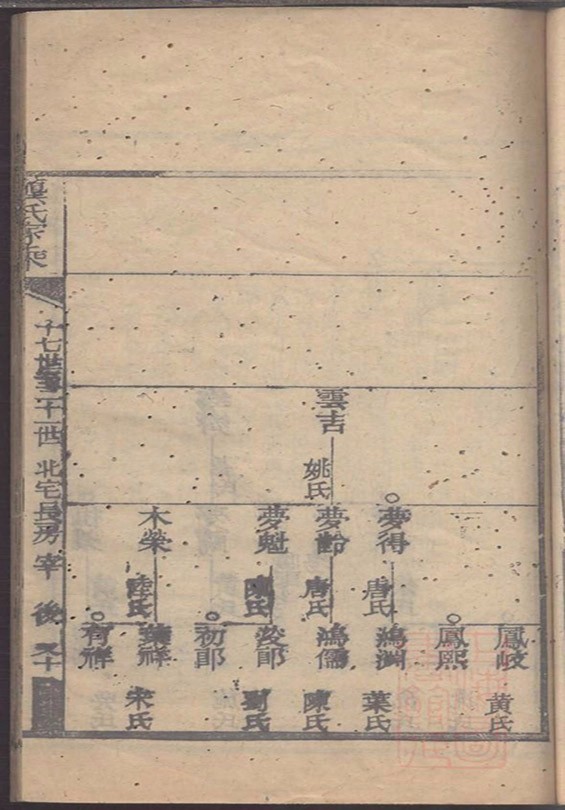 氏家乘
十七世至二十一世 北宅長房 宰 後
雲吉
姚氏
夢得
唐氏
夢齡
唐氏
夢魁
陳氏
木榮
陸氏
鳳岐
黃氏
鳳熙
鴻洲
葉氏
鴻儒
陳氏
俊郎
劉氏
初郎
祥
宋氏
有祥